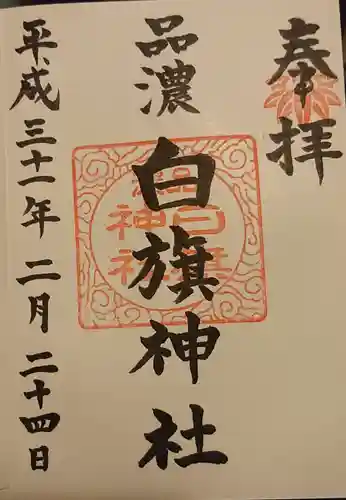 奉拝
品濃
白旗神社
平成三十一年二月二十四日
品濃
白旗
神社